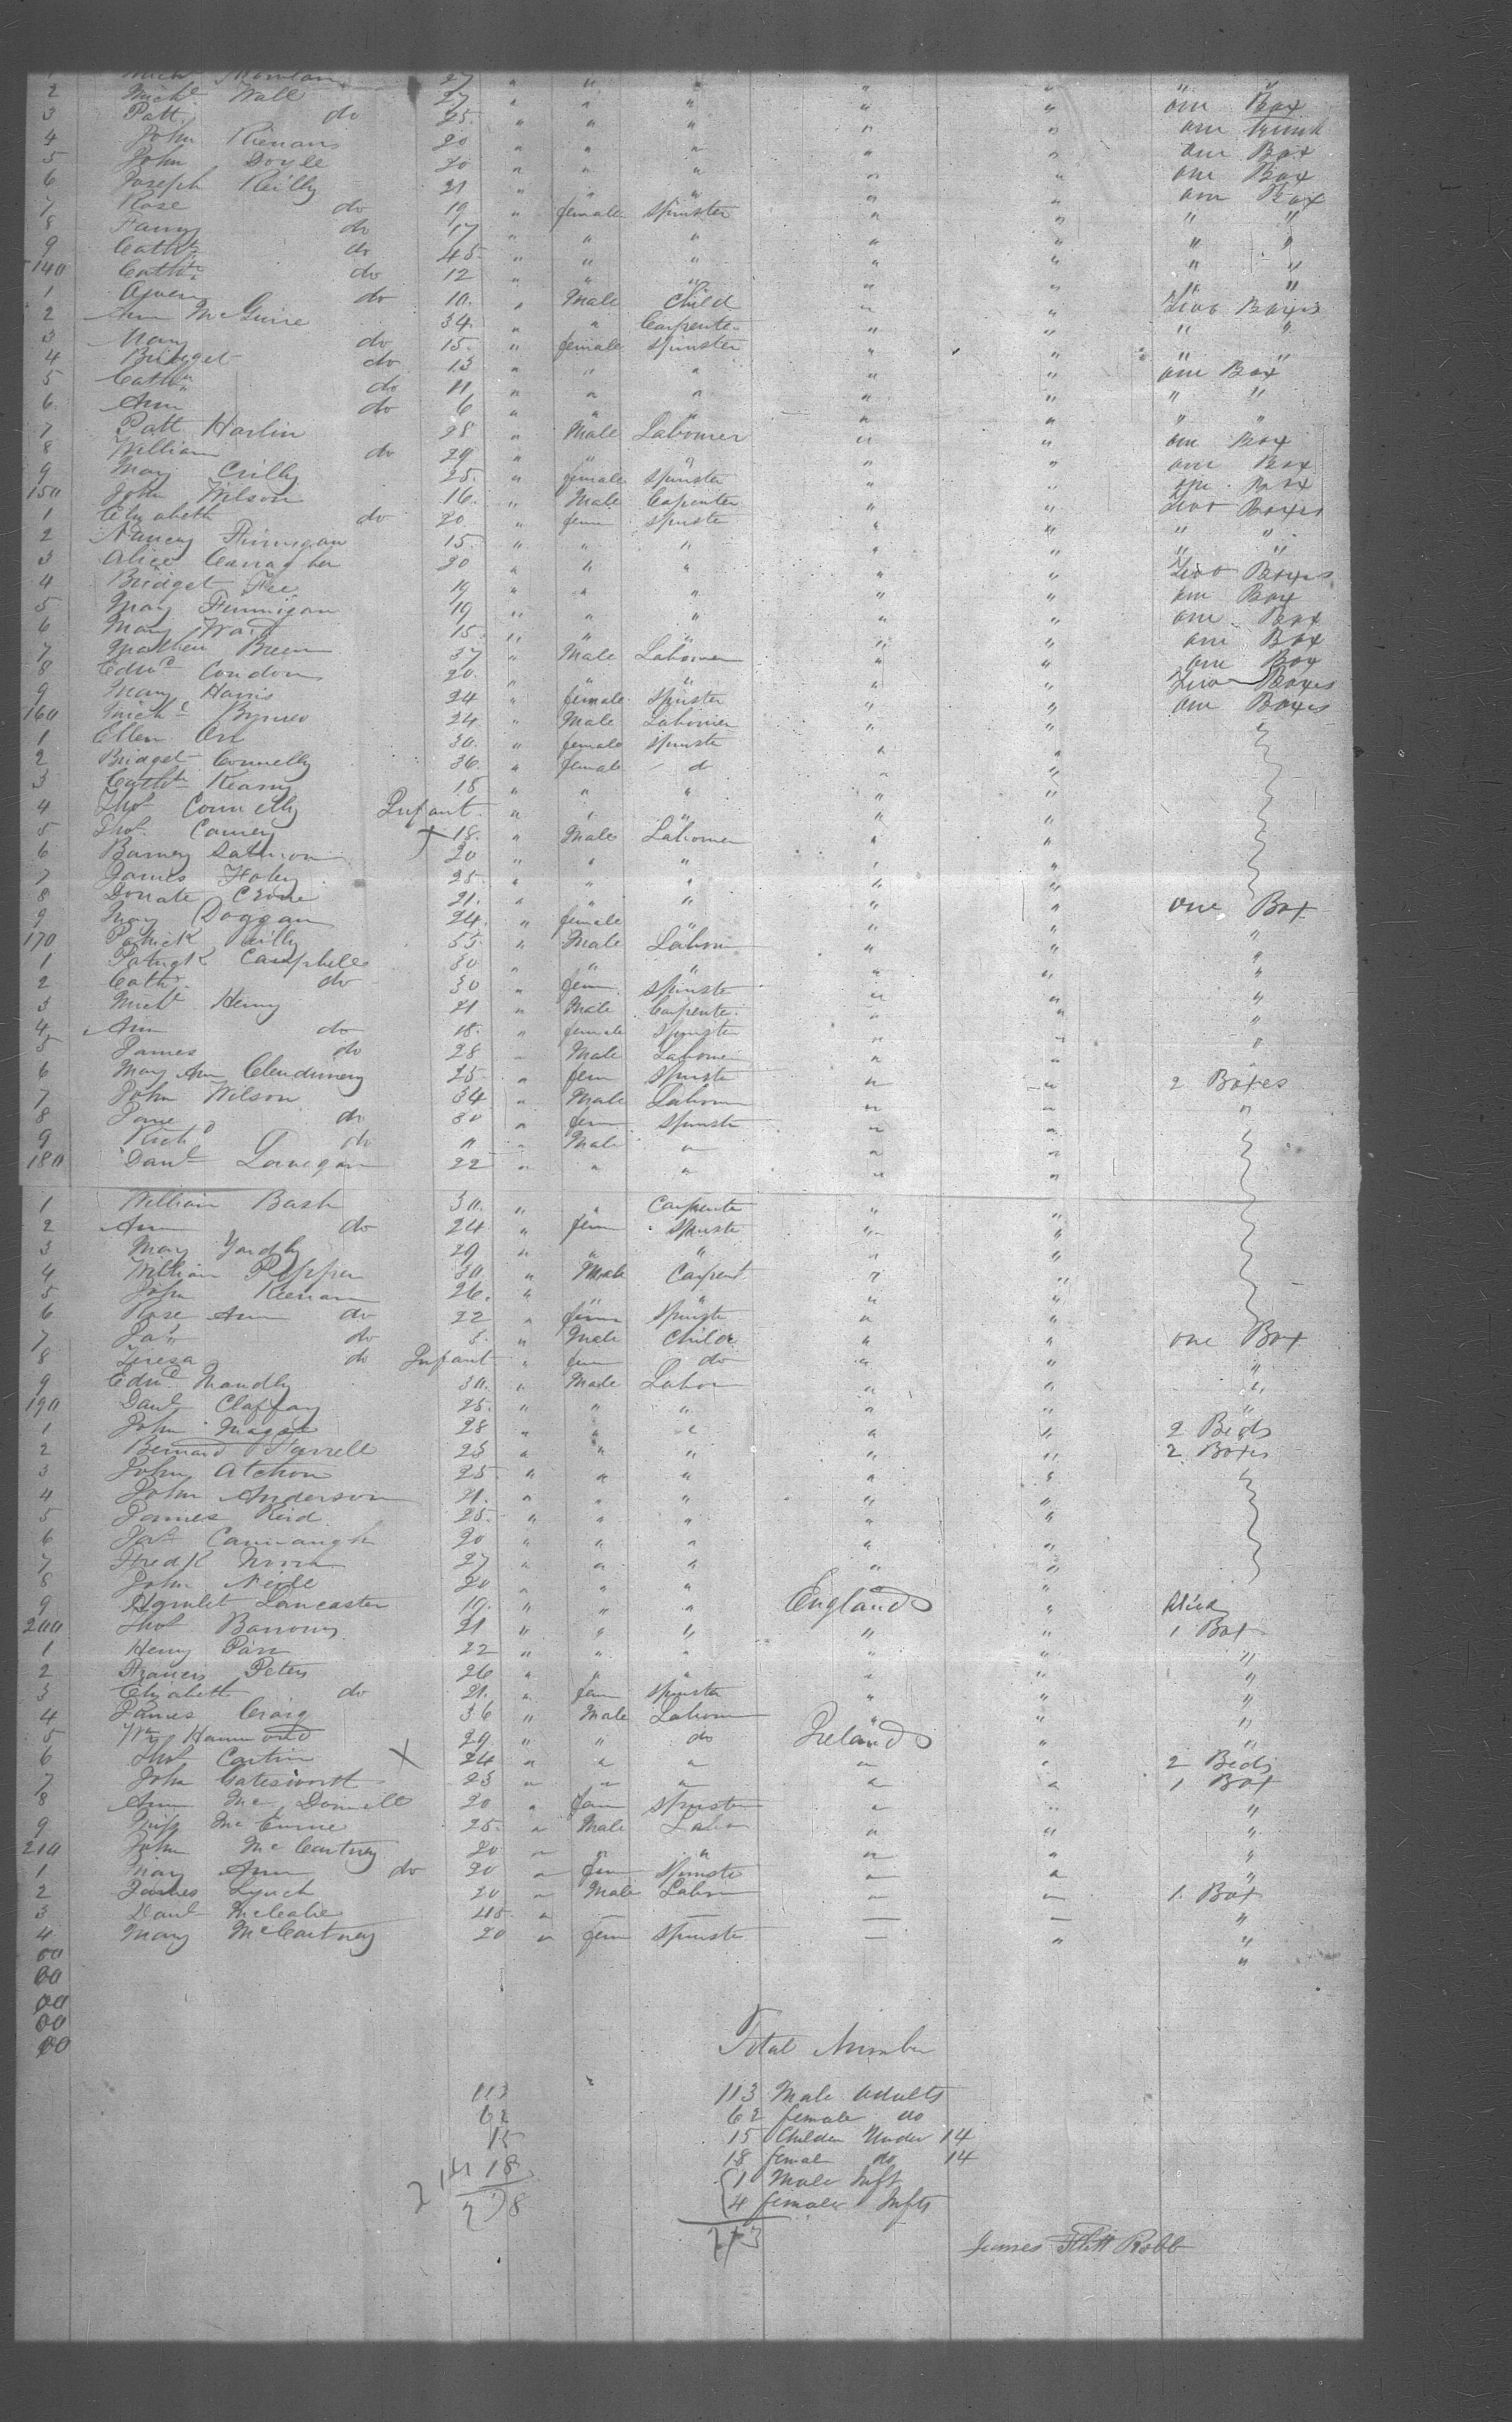 2 Michl Wall 27 " " " " " one Box
3 Patt do 25 " " " " " one trunk
4 John Kienans 20 " " " " " one Box
5 John Doyle 20 " " " " " one Box
6 Joseph Reilly 21 " " " " " one Box
7 Rose do 19 " female spinster " " " "
8 Fanny do 17 " " " " " " "
9 Cathn do 45 " " " " " " "
140 Cathn do 12 " " " " " " "
1 Owen do 10 " Male Child " " Two Boxes
2 Ann McGuire 34 " " Carpenter " " " "
3 Mary do 15 " female spinster " " " "
4 Bridget do 13 " " " " " one Box
5 Cathn do 11 " " " " " " "
6 Ann do 6 " " " " " " "
7 Patt Harlin 28 " Male Labourer " " one Box
8 William do 29 " " " " " one Box
9 Mary Crilly 25 " female spinster " " one Box
150 John Wilson 16 " Male Carpenter " " Two Boxes
1 Elizabeth do 20 " fem spinste " " " "
2 Nancy Finnegan 15 " " " " " " "
3 Alice 20 " " " " " Two Boxes
4 Bridget Fee 19 " " " " " one Box
5 Mary Finnigan 19 " " " " " one Box
6 Mary Ward 15 " " " " " one Box
7 Mathew Breen 37 " Male Labourer " " one Box
8 Edwd Condon 20 " " " " " Two Boxes
9 Mary Harris 24 " female Spinster " " one Boxes
160 Michl Byrnes 24 " Male Labourer " "
1 Ellen Orr 30 " female spinste
2 Bridget Connelly 36 " female do " "
3 Cathn Kearny 18 " " " " "
4 Thos Connelly Infant " " " " "
5 Thos Carney + 18 " Male Labourer " "
6 Barney 20 " " " " "
7 James Foley 25 " " " " "
8 21 " " " " " one Box
9 Mary Doggan 24 " female " " " "
170 Patrick Reilly 55 " Male Labour " " "
1 Patrick Campbell 30 " " " " " "
2 Cath do 30 " fem spinste " " "
3 Michl Henry 21 " Male Carpente " " "
4 Ann do 18 " female Spinster " " "
5 James do 28 " Male Labourer " "
6 Mary Ann Clendinney 25 " fem Spinste " " 2 Boxes
7 John Wilson 34 " Male Labour " " "
8 Jane do 30 " fem spinste " "
9 Richd do 11 " Male " " "
180 Danl 22 " " " " "
1 William Bash 30 " " Carpente " "
2 Ann do 24 " fem Spinste " "
3 Mary Yardly 29 " " " " "
4 William Pepper 30 " Male Carpent " "
5 John Kienan 26 " " " " "
6 Rose Ann do 22 " fem spinste " "
7 Jas do 5 " Male Child " " one Box
8 Teresa do Infant " fem do " " "
9 Edwd 30 " Male Labor " " "
190 Danl Claffay 25 " " " " " "
1 John Magan 28 " " " " " 2 Beds
2 Bernard Farrell 23 " " " " " 2 Boxes
3 John Atchon 25 " " " " "
4 John Anderson 21 " " " " "
5 James Reid 25 " " " " "
6 Jas Cavanaugh 20 " " " " "
7 Fredk 27 " " " " "
8 John Neill 20 " " " " "
9 Hamlet Lancaster 19 " " " England "
200 Thos Barrows 21 " " " " " 1 Box
1 Henry Parr 22 " " " " " "
2 Francis Peters 26 " " " " " "
3 Elizabeth do 21 " fem spinster " " "
4 James Craig 36 " Male Labour " " "
5 Wm Hammond 29 " " do Ireland " "
6 Thos Cartin X 24 " " " " " 2 Beds
7 John Gatesworth 23 " " " " " 1 Box
8 Ann Mc Donnell 20 " fem spinster " " "
9 25 " Male Labor " " "
210 John McCartney 20 " " " " " "
1 Mary Ann do 20 " fem Spinste " " "
2 James Lynch 20 " Male Labour " " 1 Box
3 Danl McCabe 45 " — — — — "
4 Mary McCartney 20 " fem Spinste — " "
00 "
00
00
00
00
Total Number
113 113 Male adults
62 62 female do
15 15 Childen Under 14
18 18 femal do 14
1 Male Inft
4 females Infts
213
James Flitt Robb